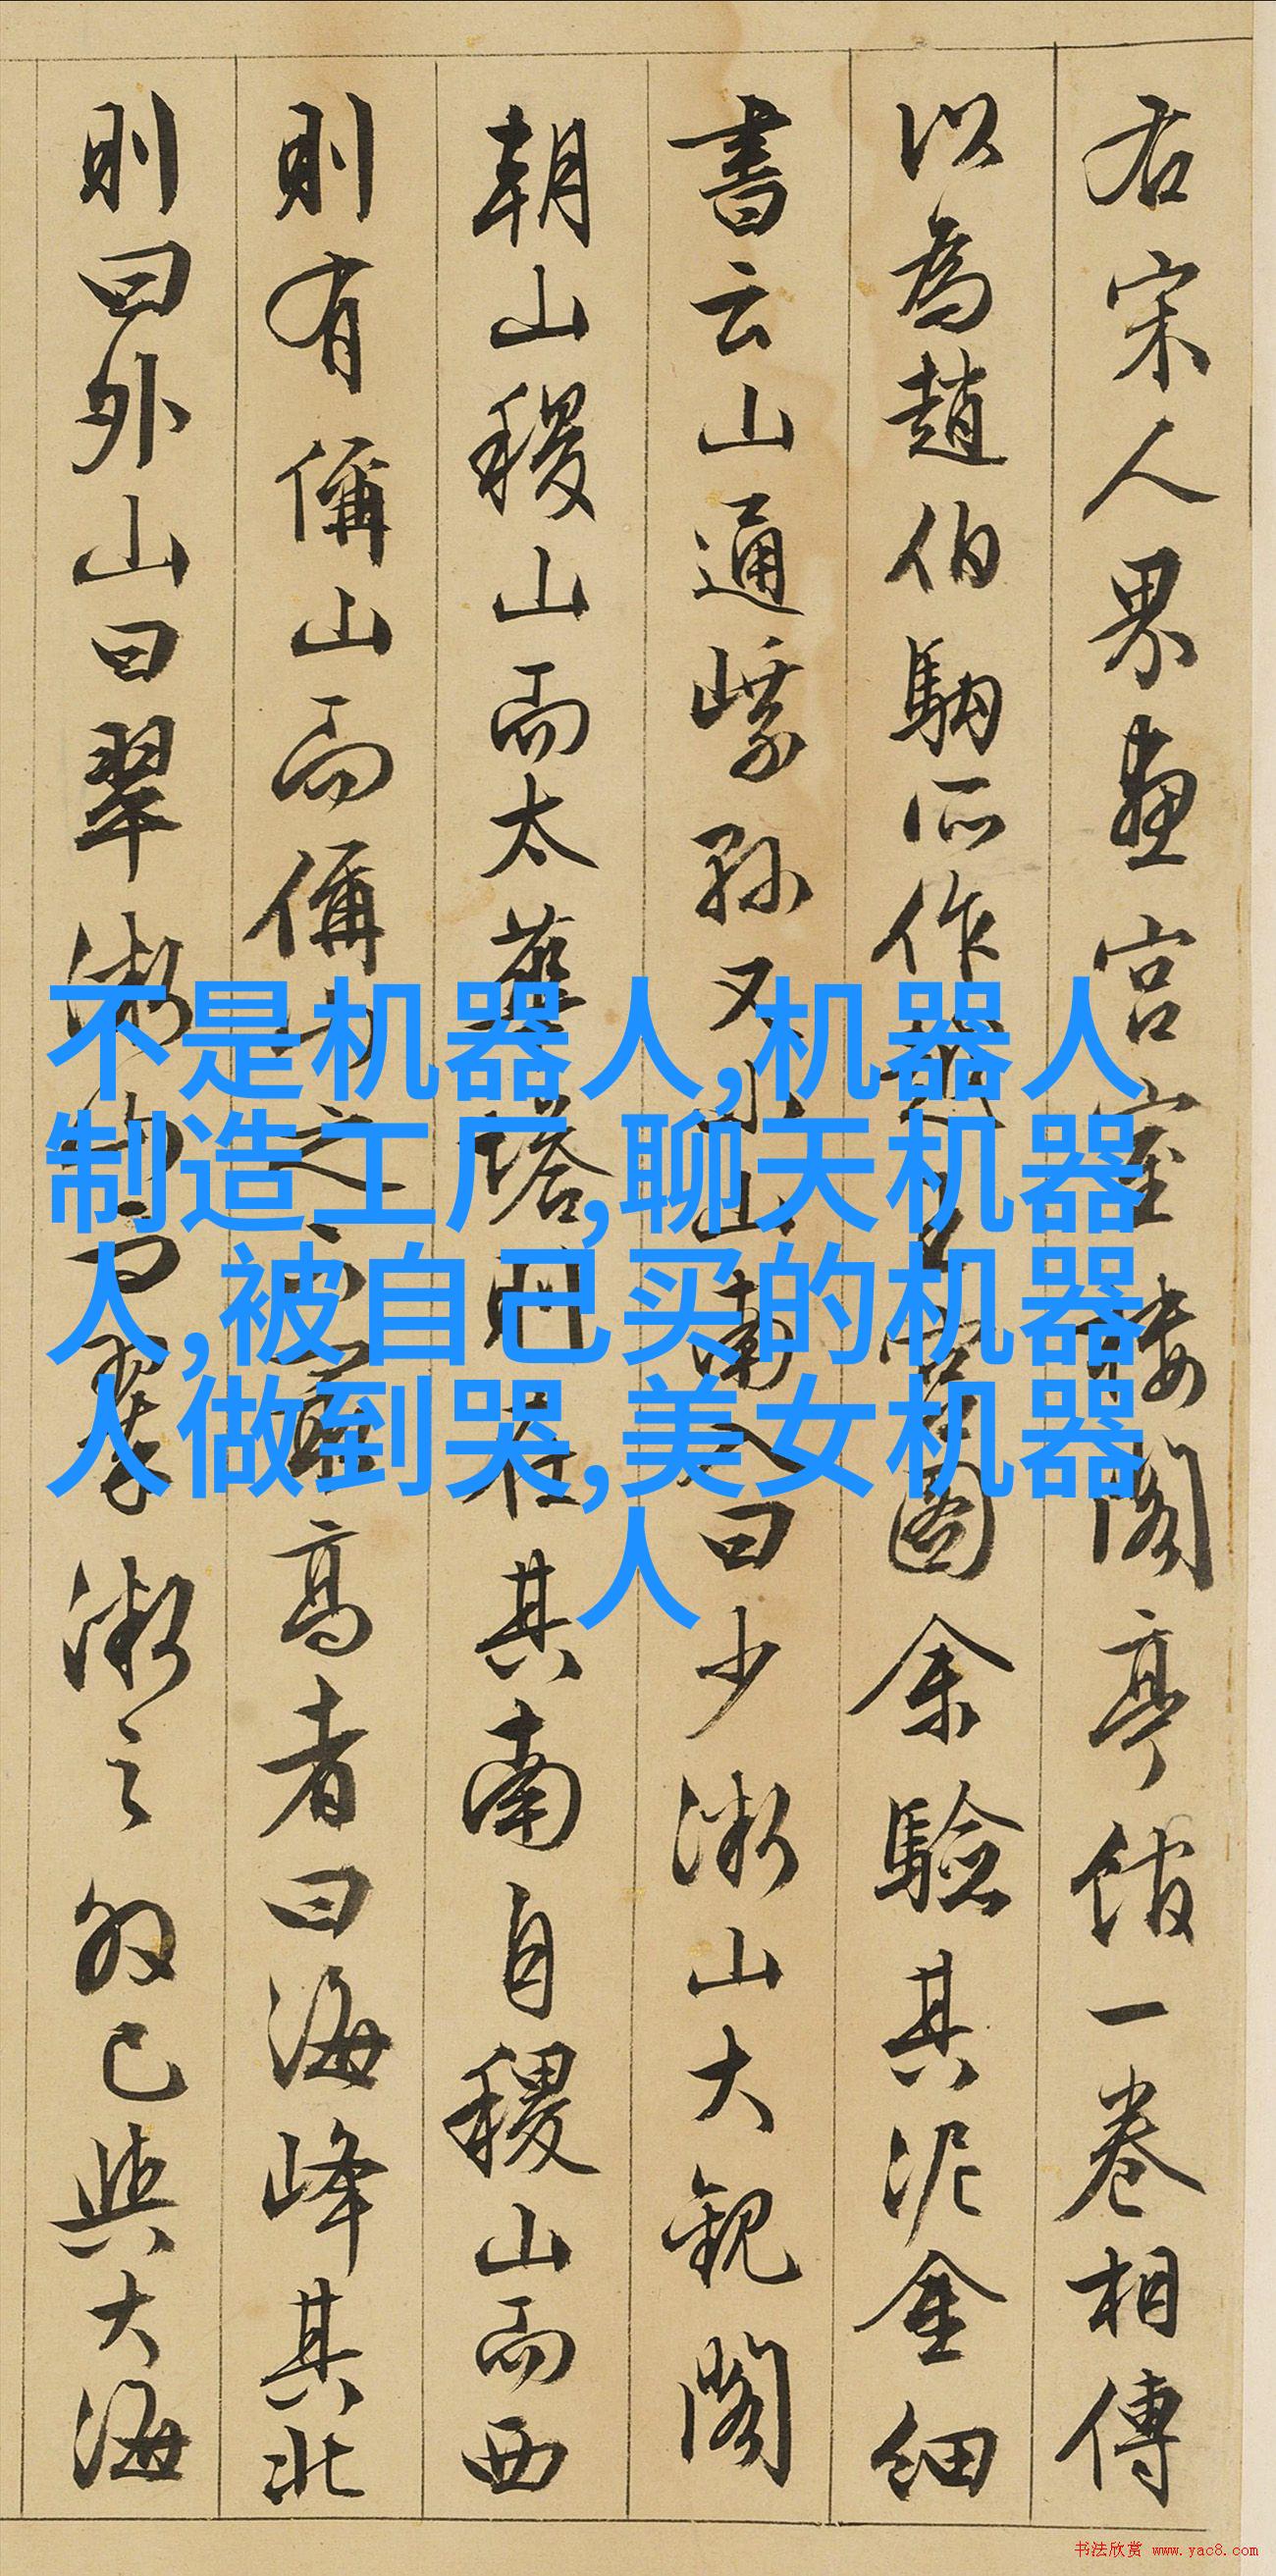 右宋人界画宫室楼阁亭馆一卷相傳
以為趙伯駒所作
圖余驗其泥金細
書云山通
孫又
山南
曰少
山大觀閣
朝山稷山而太華
塔
在其南自稷山而西
則有偁山而偁
之
高者曰海峰其北
則曰外山曰翠
之
已與大海
不是机器人,机器人
制造工厂,聊天机器
人,被自己买的机器
人做到哭,美女机器
人
书法欣赏 www.yac8.com